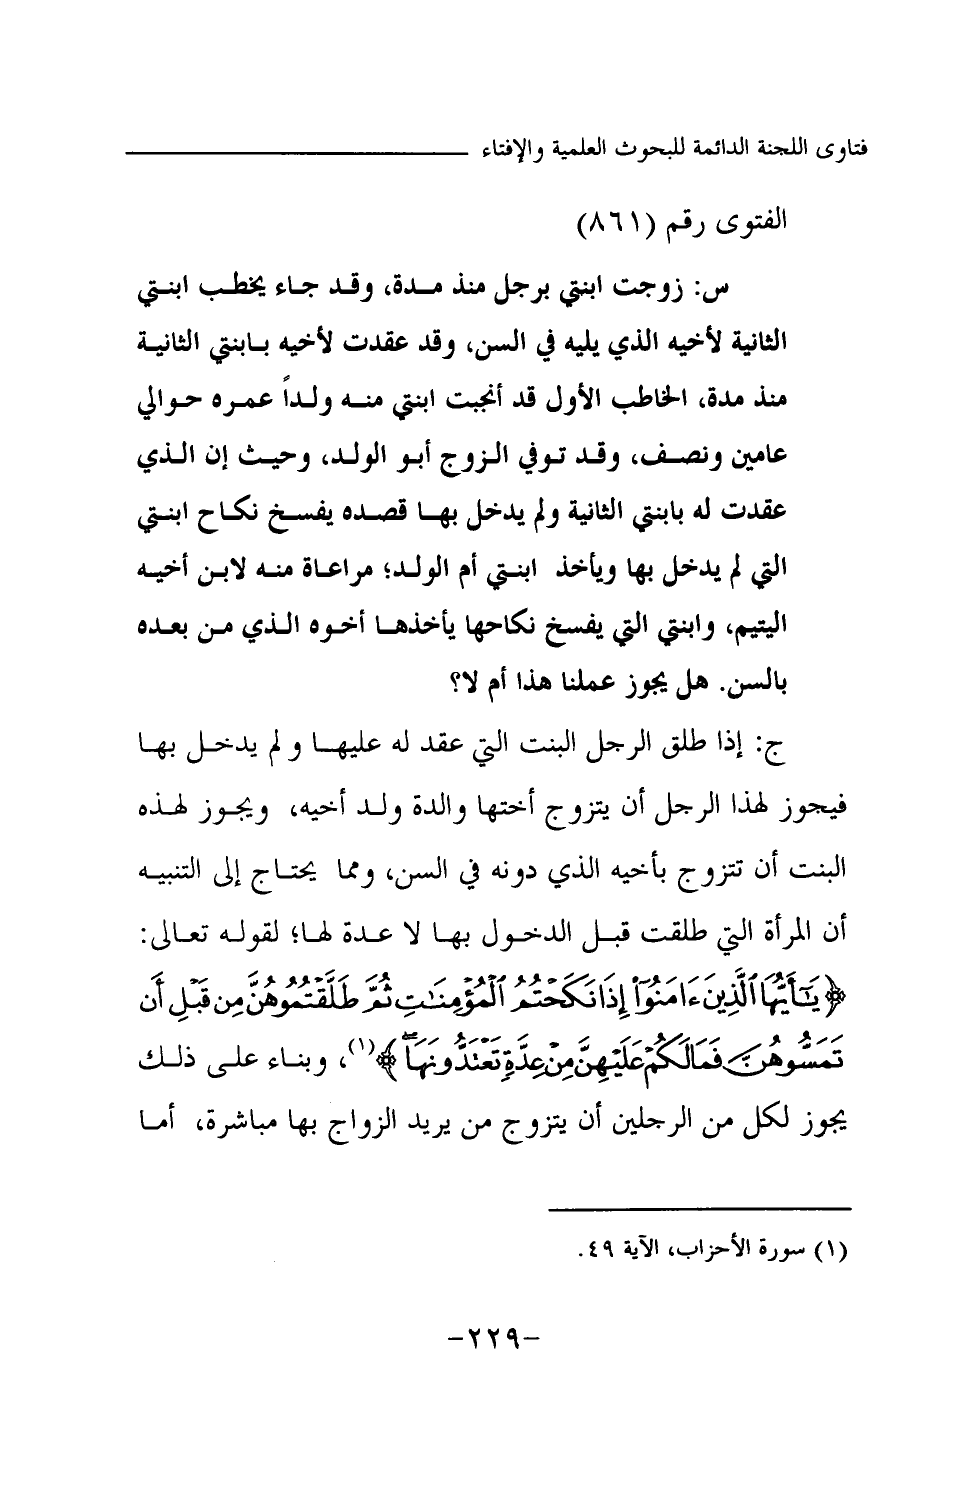 فتاوى اللجنة الدائمة للبحوث العلمية والإفتاء
الفتوى رقم (٨٦١)
س: زوجت ابنتي برجل منذ مدة، وقد جاء يخطب ابنتي
الثانية لأخيه الذي يليه في السن، وقد عقدت لأخيه بابنتي الثانية
منذ مدة، الخاطب الأول قد أنجبت ابنتي منه ولداً عمره حوالي
عامين ونصف، وقد توفي الزوج أبو الولد، وحيث إن الذي
عقدت له بابنتي الثانية ولم يدخل بها قصده يفسخ نكاح ابنتي
التي لم يدخل بها ويأخذ ابنتي أم الولد؛ مراعاة منه لابن أخيه
اليتيم، وابنتي التي يفسخ نكاحها يأخذها أخوه الذي من بعده
بالسن. هل يجوز عملنا هذا أم لا؟
ج: إذا طلق الرجل البنت التي عقد له عليها ولم يدخل بها
فيجوز لهذا الرجل أن يتزوج أختها والدة ولد أخيه، ويجوز لهذه
البنت أن تتزوج بأخيه الذي دونه في السن، ومما يحتاج إلى التنبيه
أن المرأة التي طلقت قبل الدخول بها لا عدة لها؛ لقوله تعالى:
﴿يَٰٓأَيُّهَا ٱلَّذِينَ ءَامَنُوٓا۟ إِذَا نَكَحْتُمُ ٱلْمُؤْمِنَٰتِ ثُمَّ طَلَّقْتُمُوهُنَّ مِن قَبْلِ أَن
تَمَسُّوهُنَّ فَمَا لَكُمْ عَلَيْهِنَّ مِنْ عِدَّةٍ تَعْتَدُّونَهَا﴾(١)، وبناء على ذلك
يجوز لكل من الرجلين أن يتزوج من يريد الزواج بها مباشرة، أما
(١) سورة الأحزاب، الآية ٤٩.
-٢٢٩-